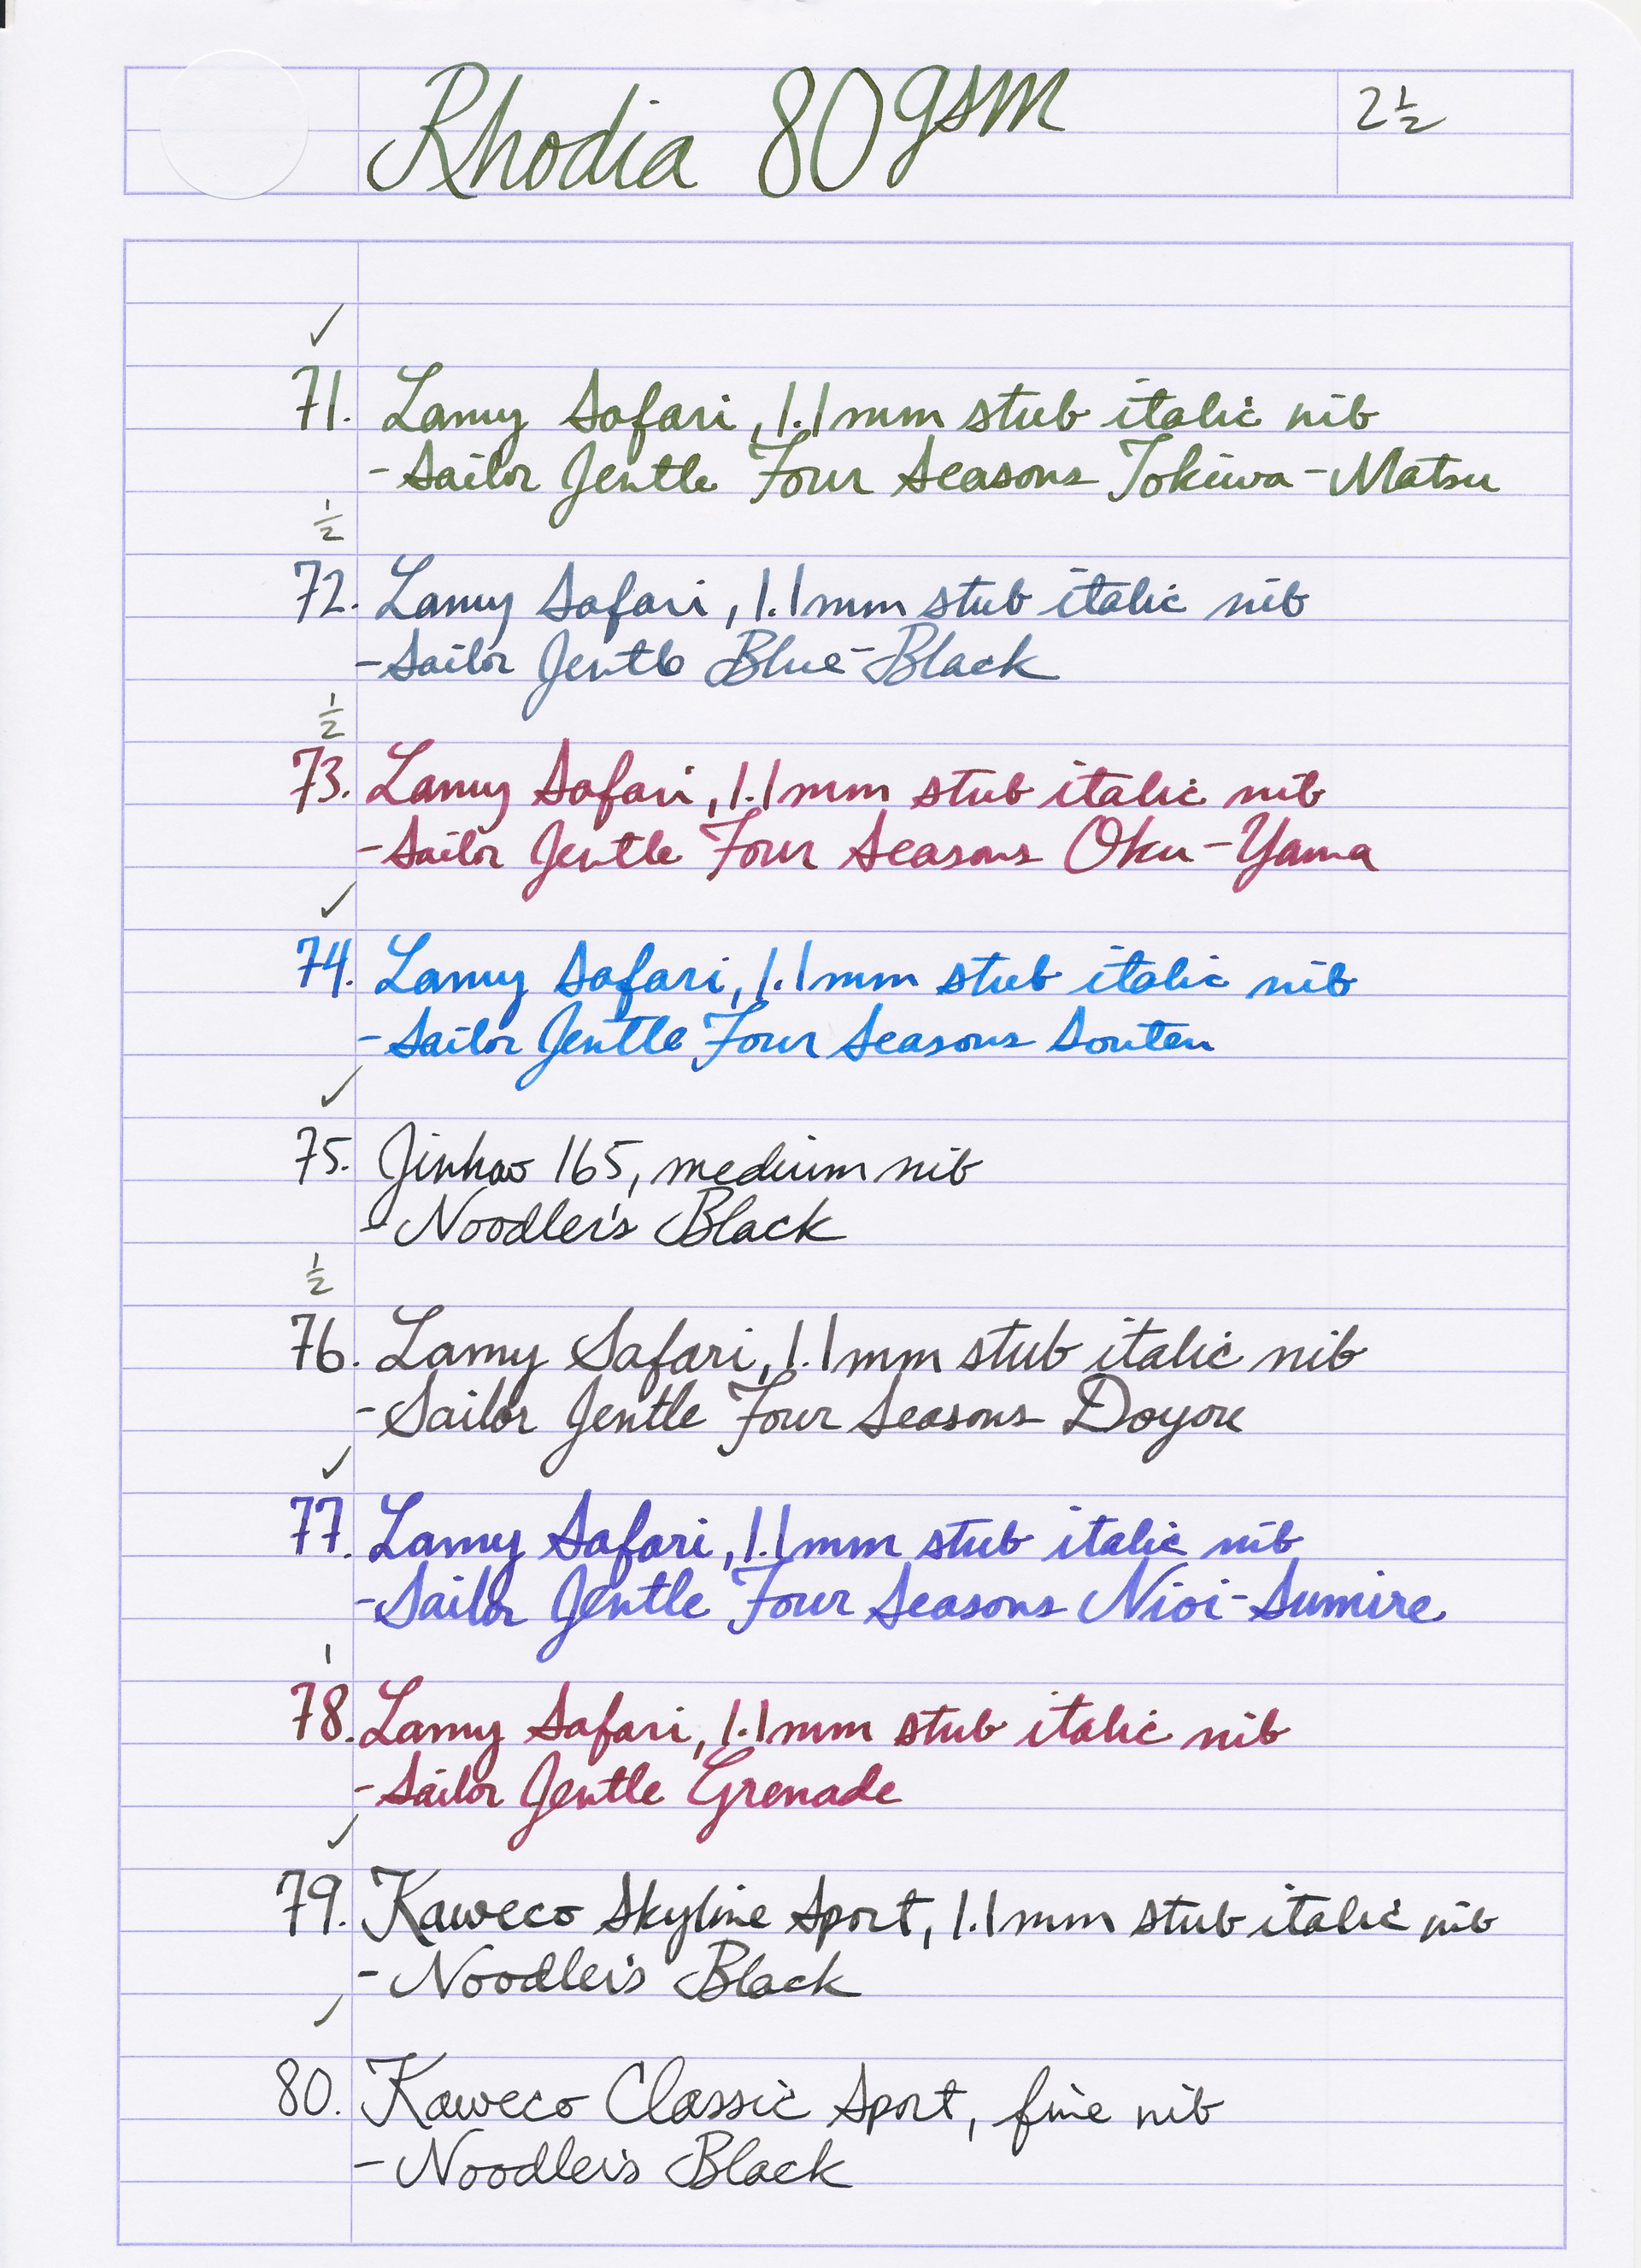 Rhodia 80gsm
2 1/2
✓
71. Lamy Safari, 1.1mm stub italic nib
- Sailor Jentle Four Seasons Tokiwa-Matsu
1/2
72. Lamy Safari, 1.1mm stub italic nib
- Sailor Jentle Blue-Black
1/2
73. Lamy Safari, 1.1mm stub italic nib
- Sailor Jentle Four Seasons Oku-Yama
✓
74. Lamy Safari, 1.1mm stub italic nib
- Sailor Jentle Four Seasons Souten
✓
75. Jinhao 165, medium nib
- Noodler's Black
1/2
76. Lamy Safari, 1.1mm stub italic nib
- Sailor Jentle Four Seasons Doyou
✓
77. Lamy Safari, 1.1mm stub italic nib
- Sailor Jentle Four Seasons Nioi-Sumire
1
78. Lamy Safari, 1.1mm stub italic nib
- Sailor Jentle Grenade
✓
79. Kaweco Skyline Sport, 1.1mm stub italic nib
- Noodler's Black
✓
80. Kaweco Classic Sport, fine nib
- Noodler's Black